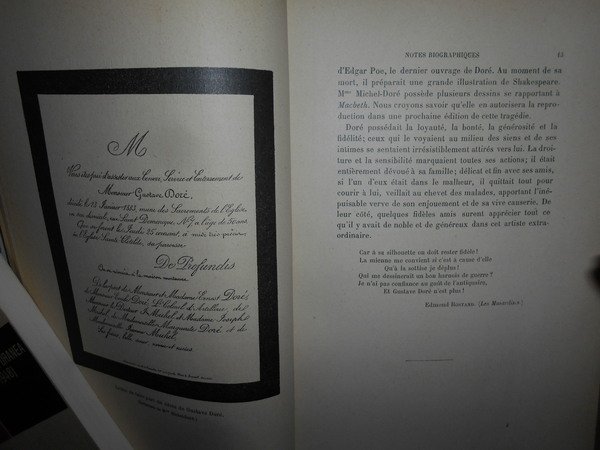 M
Vous êtes prié d'assister aux Convoi, Service et Enterrement de
Monsieur Gustave Doré,
décédé le 23 Janvier 1883, muni des Sacrements de l'Église,
en son domicile, rue Saint Dominique, No 7, à l'âge de 50 ans,
Qui se feront le Jeudi 25 courant, à midi très précis,
en l'Église Sainte Clotilde, sa paroisse.
De Profundis
On se réunira à la maison mortuaire.
De la part de Monsieur et Madame Ernest Doré,
de Monsieur Emile Doré, Lt Colonel d'Artillerie, de
Monsieur le Docteur J. Michel et Madame Joseph
Michel, de Mademoiselle Marguerite Doré et de
Mademoiselle Jeanne Michel,
Ses frères, belle sœur, et nièces.
Lettre de faire-part du décès de Gustave Doré.
NOTES BIOGRAPHIQUES 13
d'Edgar Poe, le dernier ouvrage de Doré. Au moment de sa
mort, il préparait une grande illustration de Shakespeare.
Mme Michel-Doré possède plusieurs dessins se rapportant à
Macbeth. Nous croyons savoir qu'elle en autorisera la repro-
duction dans une prochaine édition de cette tragédie.
Doré possédait la loyauté, la bonté, la générosité et la
fidélité; ceux qui le voyaient au milieu des siens et de ses
intimes se sentaient irrésistiblement attirés vers lui. La droi-
ture et la sensibilité marquaient toutes ses actions; il était
entièrement dévoué à sa famille; délicat et fin avec ses amis,
si l'un d'eux était dans le malheur, il quittait tout pour
courir à lui, veillait au chevet des malades, apportant l'iné-
puisable verve de son enjouement et de sa vive causerie. De
leur côté, quelques fidèles amis surent apprécier tout ce
qu'il y avait de noble et de généreux dans cet artiste extra-
ordinaire.
Car à sa silhouette on doit rester fidèle!
La mienne me convient si c'est à cause d'elle
Qu'à la sottise je déplus!
Qui me dessinerait un bon harnois de guerre?
Je n'ai pas confiance au goût de l'antiquaire,
Et Gustave Doré n'est plus!
Edmond Rostand. (Les Musardises.)